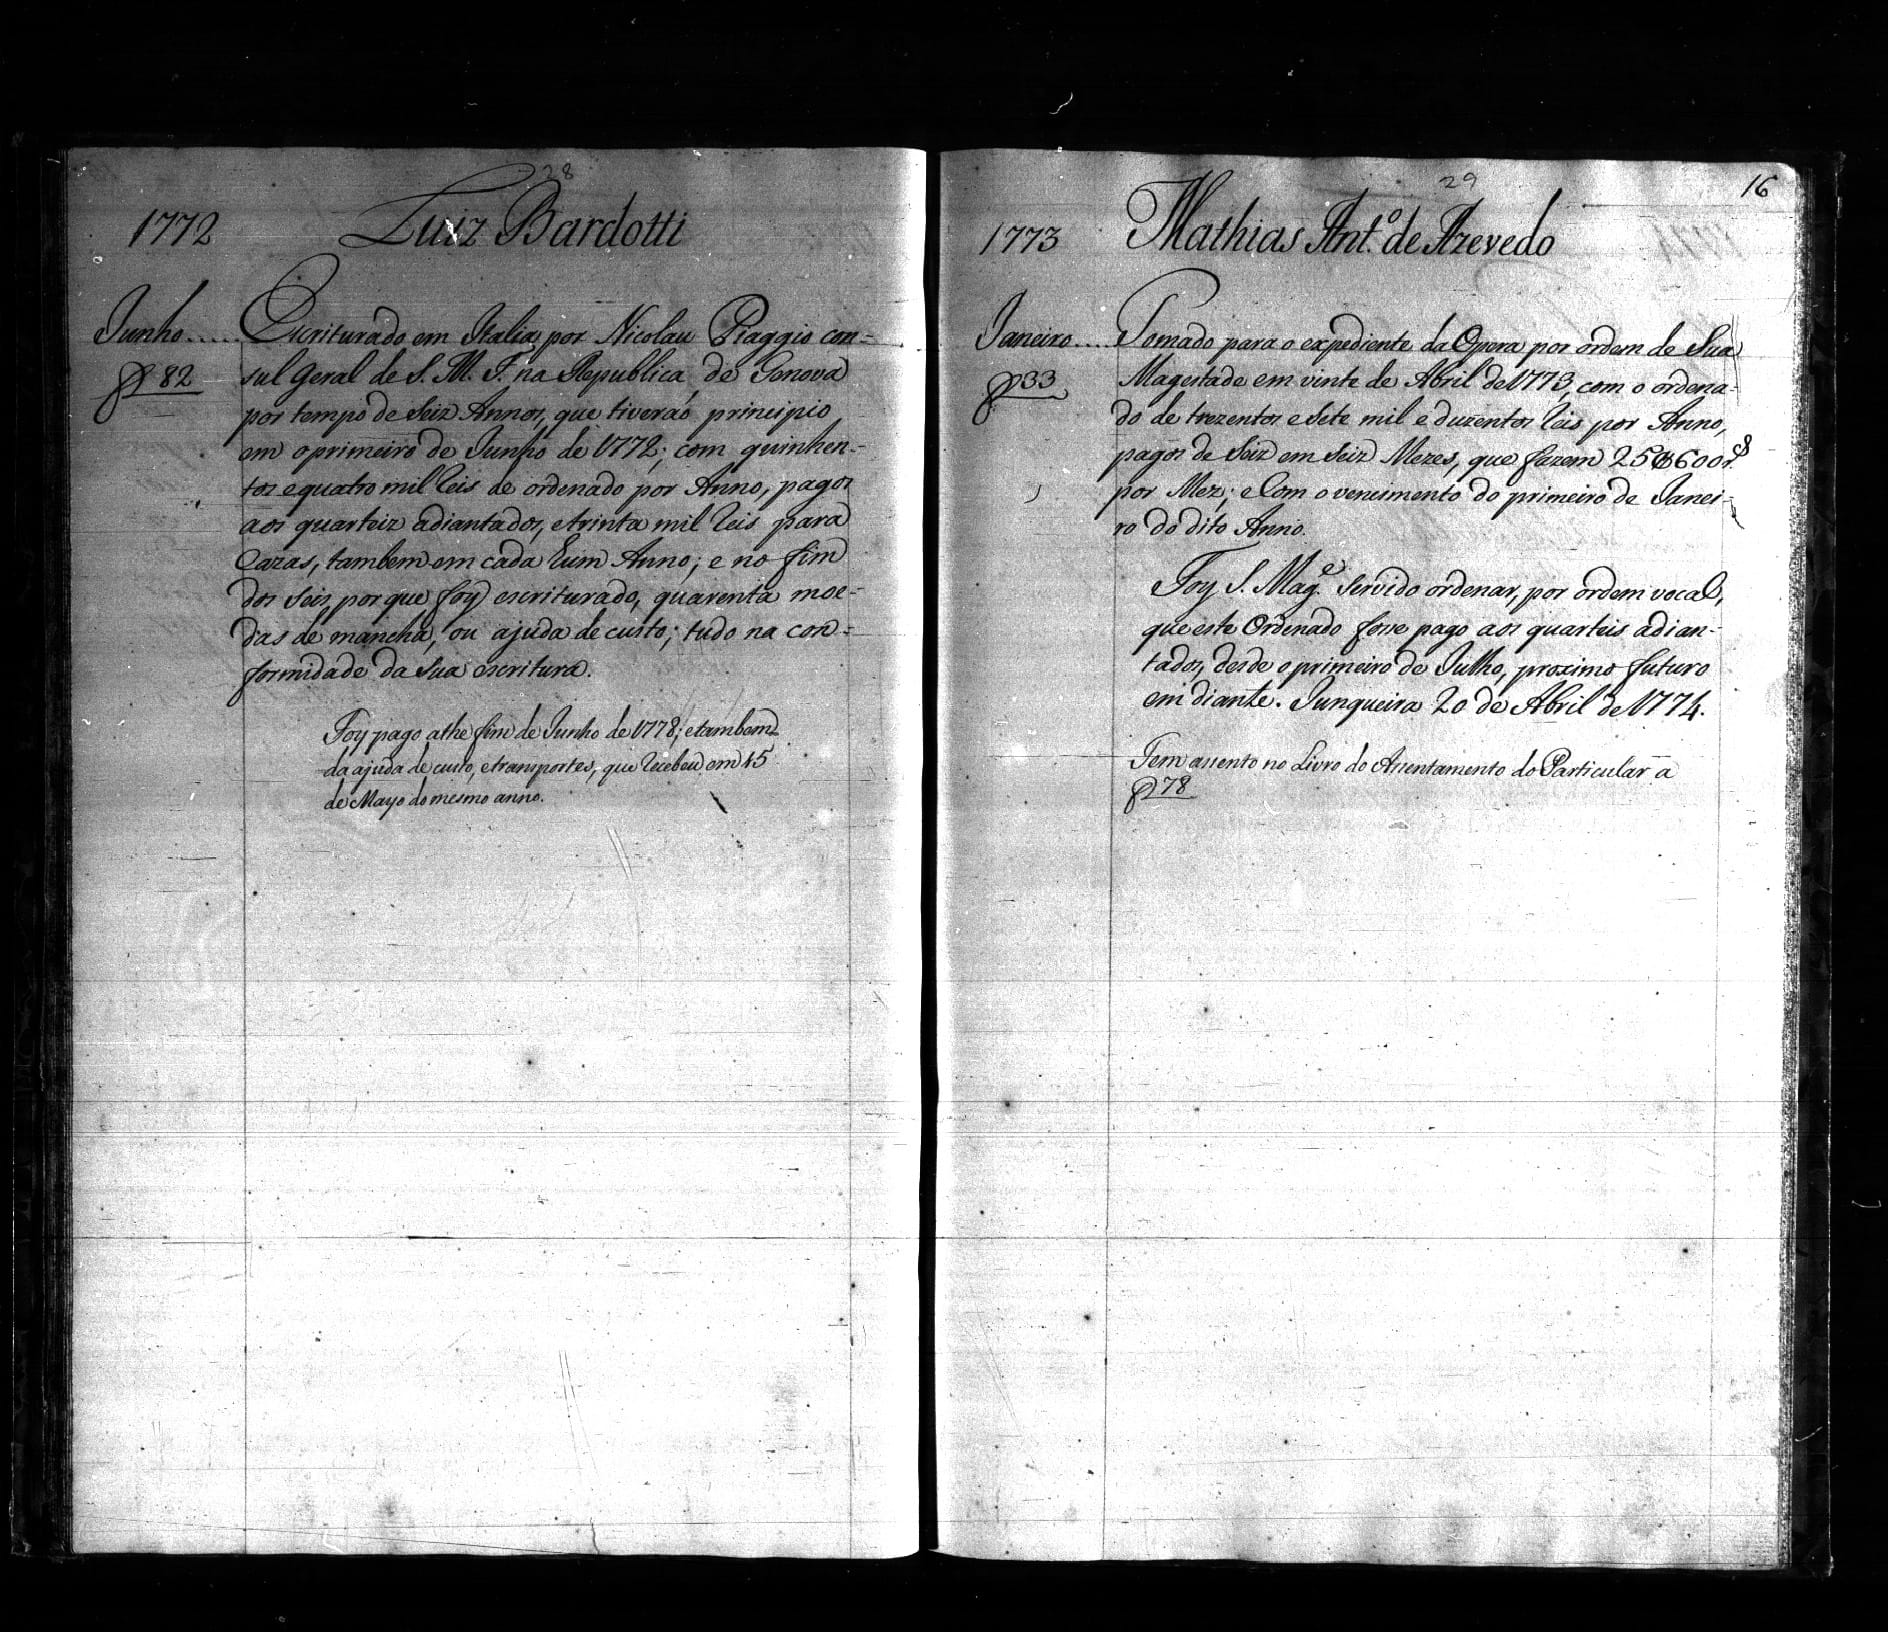 28
1772 Luiz Bardotti
Junho..... Escriturado em Italia por Nicolau Piaggio con=
f 82 sul geral de S. M. F. na Republica de Genova
por tempo de Seiz Annos, que tiveraó principio
em o primeiro de Junho de 1772; com quinhen-
tos e quatro mil reis de ordenado por Anno, pagos
aos quarteiz adiantados, e trinta mil reis para
Cazas, tambem em cada hum Anno; e no fim
dos Seis por que foy escriturado, quarenta moe-
das de mancha, ou ajuda de custo; tudo na con=
formidade da Sua escritura.
Foy pago athe fim de Junho de 1778; e tambem
da ajuda de custo, e transportes, que recebeu em 15
de Mayo do mesmo anno.
29
16
1773 Mathias Antº. de Azevedo
Janeiro.... Tomado para o expediente da Opera por ordem de Sua
f 33 Magestade em vinte de Abril de 1773, com o ordena=
do de trezentos e sete mil e duzentos reis por Anno,
pagos de Seiz em Seiz Mezes, que fazem 25$600 r.s
por Mez; e com o vencimento do primeiro de Janei-
ro do dito Anno.
Foy S. Mag.e Servido ordenar, por ordem vocal,
que este Ordenado fosse pago aos quarteis adian-
tados, desde o primeiro de Julho, proximo futuro
em diante. Junqueira 20 de Abril de 1774.
Tem assento no Livro do Assentamento do Particular a
f 78